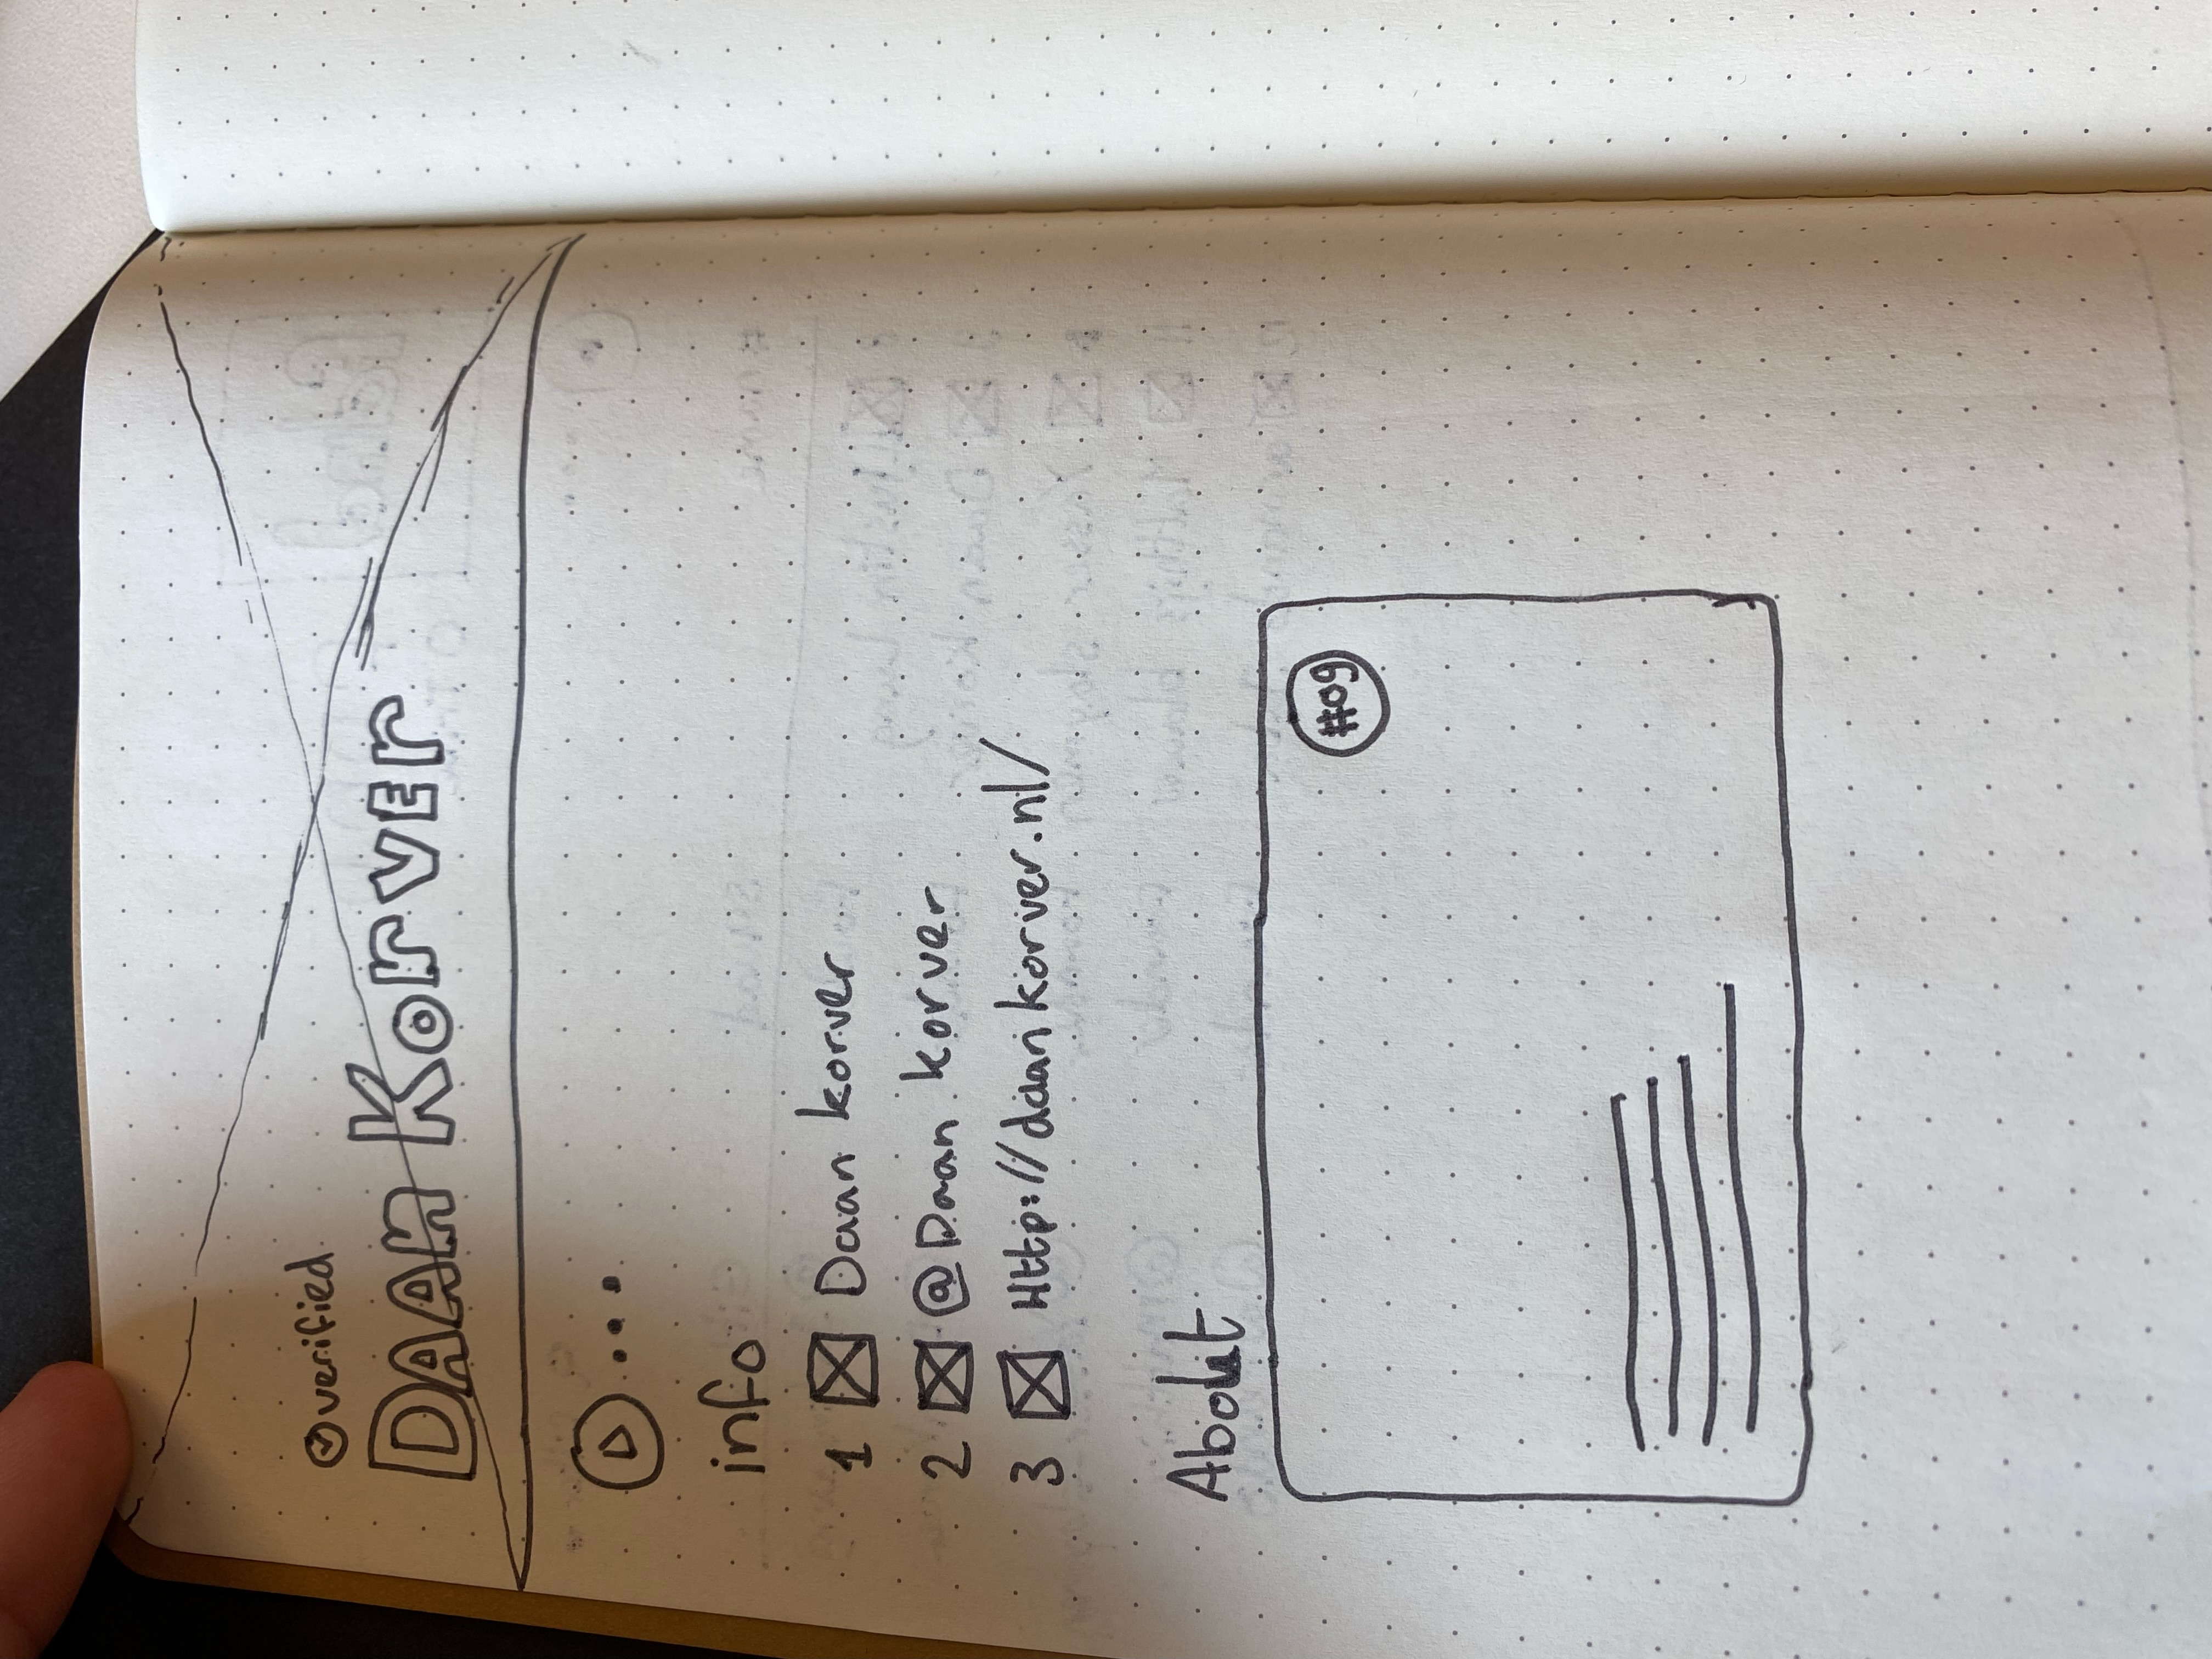 verified
DAAN KORVER
info
1 Daan korver
2 @Daan korver
3 Http://daankorver.nl/
About
#09